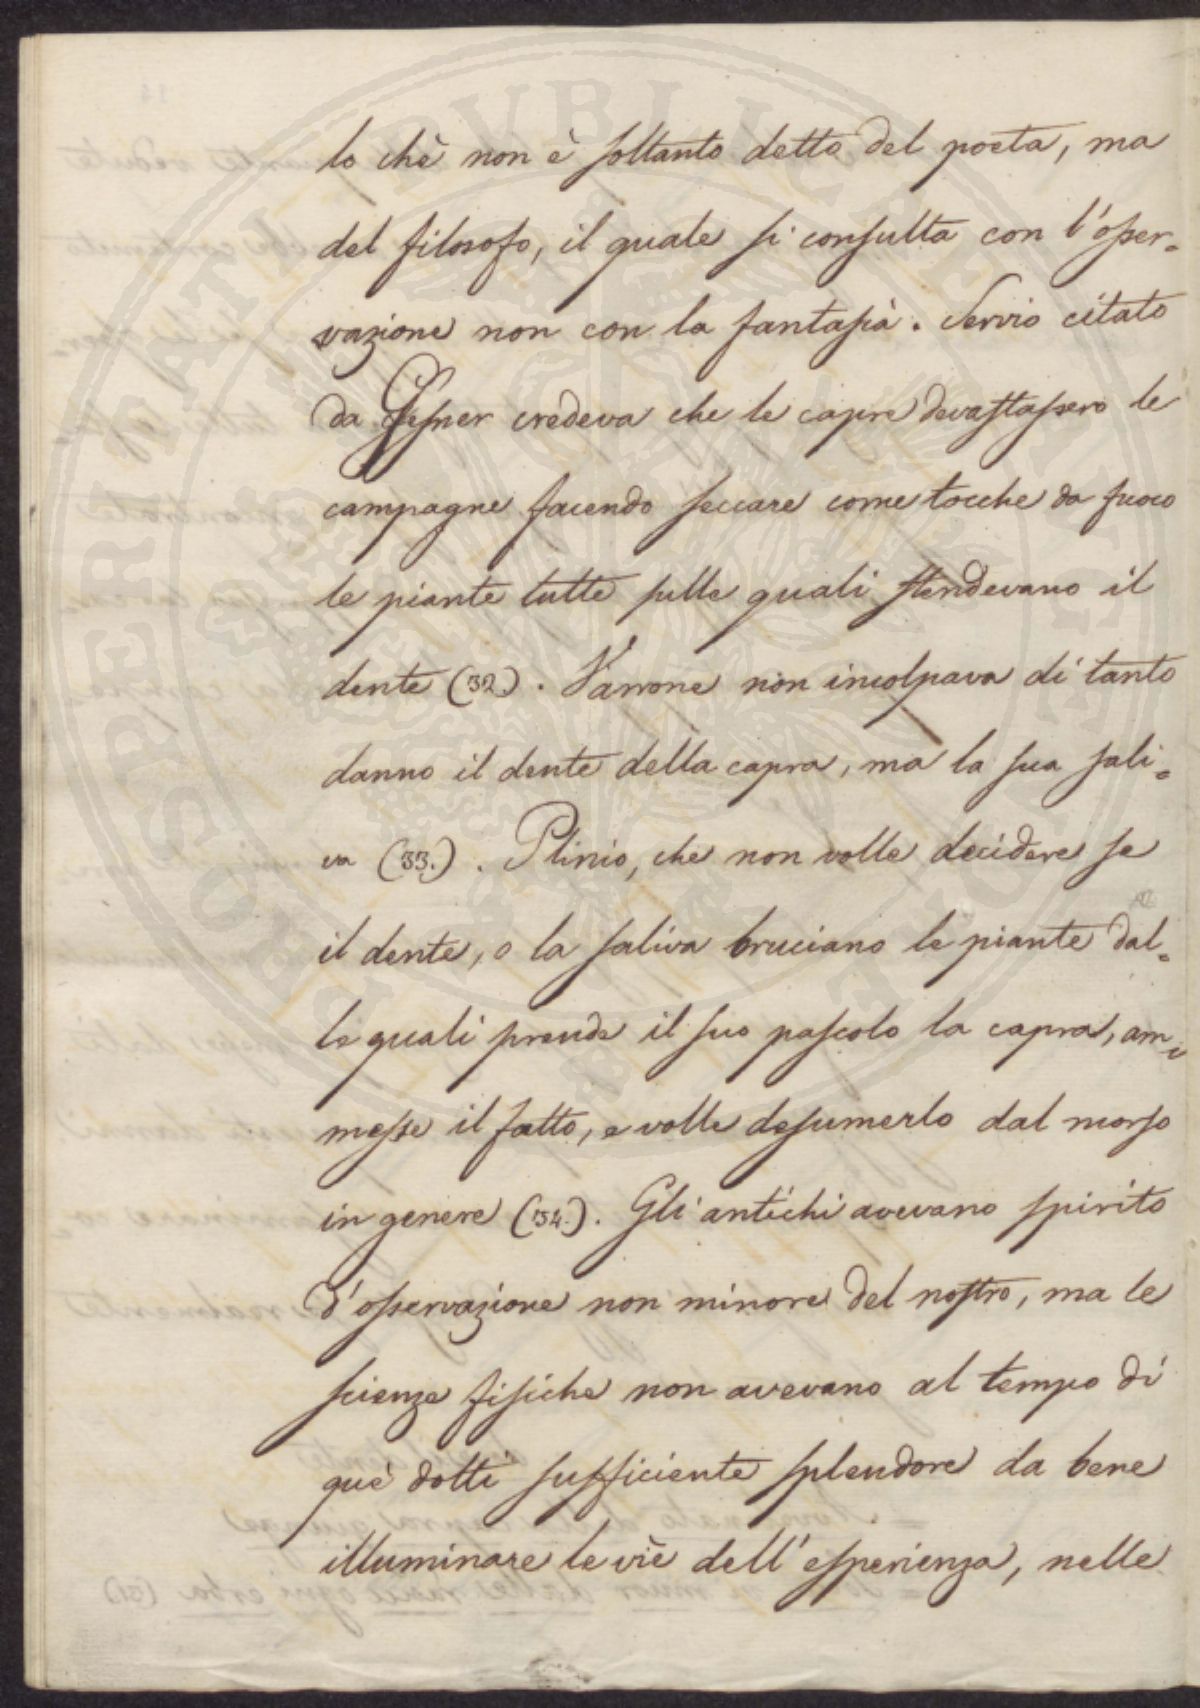 lo chè non è soltanto detto del poeta, ma
del filosofo, il quale si consulta con l'osser=
vazione non con la fantasia. Servio citato
da Gesner credeva che le capre devastassero le
campagne facendo seccare come tocche da fuoco
le piante tutte sulle quali stendevano il
dente (32.). Varrone non incolpava di tanto
danno il dente della capra, ma la sua sali=
va (33.). Plinio, che non volle decidere se
il dente, o la saliva bruciano le piante dal=
le quali prende il suo pascolo la capra, am=
messe il fatto, e volle desumerlo dal morso
in genere (34.). Gli antichi avevano spirito
d'osservazione non minore del nostro, ma le
scienze fisiche non avevano al tempo di
què dotti sufficiente splendore da bene
illuminare le vie dell'esperienza, nelle